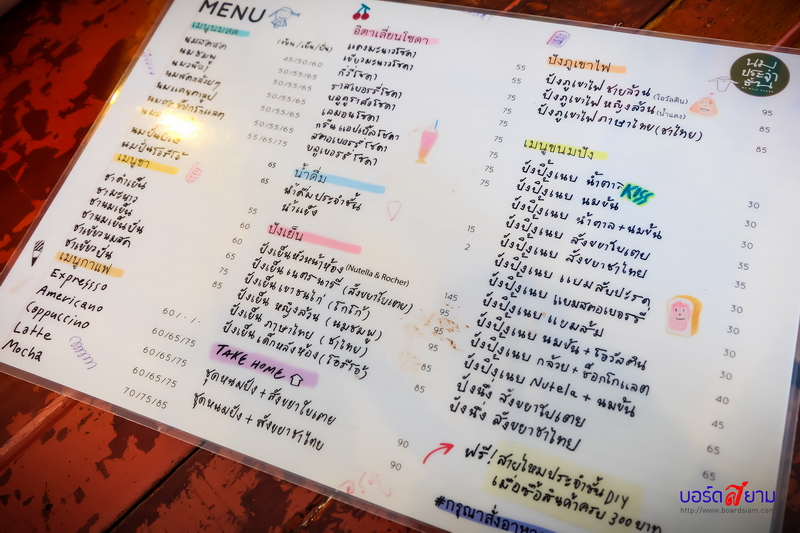 MENU
เมนูนมสด
(ร้อน/เย็น/ปั่น)
นมสดชีส
นมชมพู 45/50/60
50/55/65
50/55/65
50/55/65
50/55/65
50/55/65
55/65/75
นมปั่นโอรีโอ้ 65
เมนูชา
ชาดำเย็น
ชามะนาว 55
ชานมเย็น 60
ชานมเย็นปั่น 65
ชาเขียวนมสด 75
ชาเขียวปั่น 85
เมนูกาแฟ
Expressso 60/-/-
Americano 60/65/75
Cappuccino 60/65/75
Latte 60/65/75
Mocha 70/75/85
อิตาเลี่ยนโซดา
แดงมะนาวโซดา 55
เขียวมะนาวโซดา 55
กีวี่โซดา 75
ราสเบอร์รี่โซดา 75
บลูคูราสโซดา 75
เลมอนโซดา 75
กรีนแอปเปิ้ลโซดา 75
สตอเบอร์รี่โซดา 75
บลูเบอร์รี่โซดา 75
น้ำดื่ม
น้ำดื่มประจำชั้น 15
น้ำแข็ง 2
ปังเย็น
ปังเย็นหัวหน้าห้อง (Nutella & Rocher) 145
ปังเย็นเนตรนารี (สังขยาใบเตย) 95
ปังเย็นเขาชนไก่ (โกโก้) 95
ปังเย็น หญิงล้วน (นมชมพู) 85
ปังเย็น ภาษาไทย (ชาไทย) 85
ปังเย็นเด็กหลังห้อง (โอรีโอ้) 85
TAKE HOME
ชุดหนมปัง + สังขยาใบเตย 90
ชุดหนมปัง + สังขยาชาไทย 90
ปังภูเขาไฟ
ปังภูเขาไฟ ชายล้วน (โอวัลติน) 95
ปังภูเขาไฟ หญิงล้วน (น้ำแดง) 85
ปังภูเขาไฟ ภาษาไทย (ชาไทย) 85
นม
ประจำ
ชั้น
เมนูขนมปัง
KISS
ปังปิ้งเนย น้ำตาล 30
ปังปิ้งเนย นมข้น 30
ปังปิ้งเนย น้ำตาล + นมข้น 30
ปังปิ้งเนย สังขยาใบเตย 35
ปังปิ้งเนย สังขยาชาไทย 35
ปังปิ้งเนย แยมสับปะรด 30
ปังปิ้งเนย แยมสตอเบอร์รี่ 30
ปังปิ้งเนย แยมส้ม 30
ปังปิ้งเนย นมข้น + โอวัลติน 30
ปังปิ้งเนย กล้วย + ช็อกโกแลต 40
ปังปิ้งเนย Nutela + นมข้น 45
ปังนึ่ง สังขยาใบเตย 65
ปังนึ่ง สังขยาชาไทย 65
ฟรี! สายไหมประจำชั้น DIY
เมื่อซื้อสินค้าครบ 300 บาท
#กรุณาสั่งอาหาร
บอร์ดสยาม
http://www.boardsiam.com